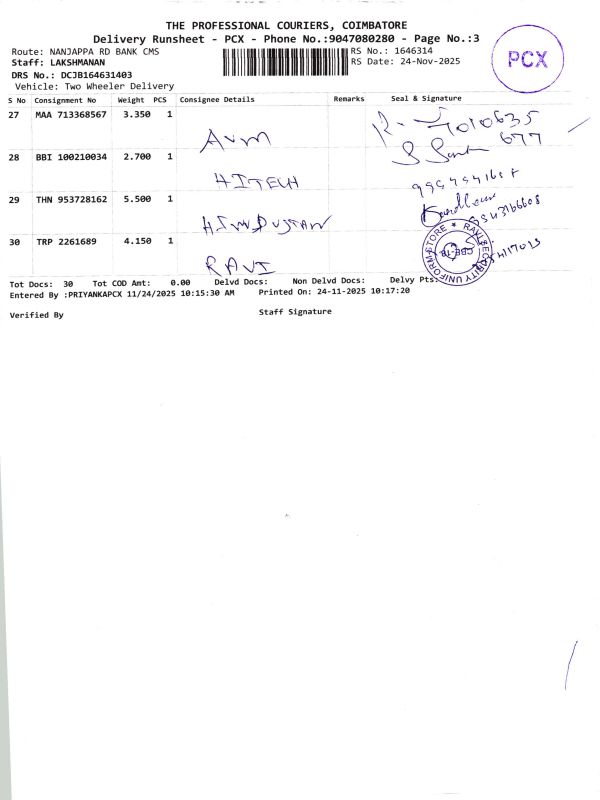 THE PROFESSIONAL COURIERS, COIMBATORE
Delivery Runsheet - PCX - Phone No.:9047080280 - Page No.:3
Route: NANJAPPA RD BANK CMS RS No.: 1646314
Staff: LAKSHMANAN RS Date: 24-Nov-2025
PCX
DRS No.: DCJB164631403
Vehicle: Two Wheeler Delivery
S No Consignment No Weight PCS Consignee Details Remarks Seal & Signature
27 MAA 713368567 3.350 1
AVM
7010635
677
28 BBI 100210034 2.700 1
HITECH
29 THN 953728162 5.500 1
HINDUSTAN
30 TRP 2261689 4.150 1
RAVI
RAVI SECURITY UNIFORM STORE ★
CBE-18
Tot Docs: 30 Tot COD Amt: 0.00 Delvd Docs: Non Delvd Docs: Delvy Pts:
Entered By :PRIYANKAPCX 11/24/2025 10:15:30 AM Printed On: 24-11-2025 10:17:20
Verified By Staff Signature